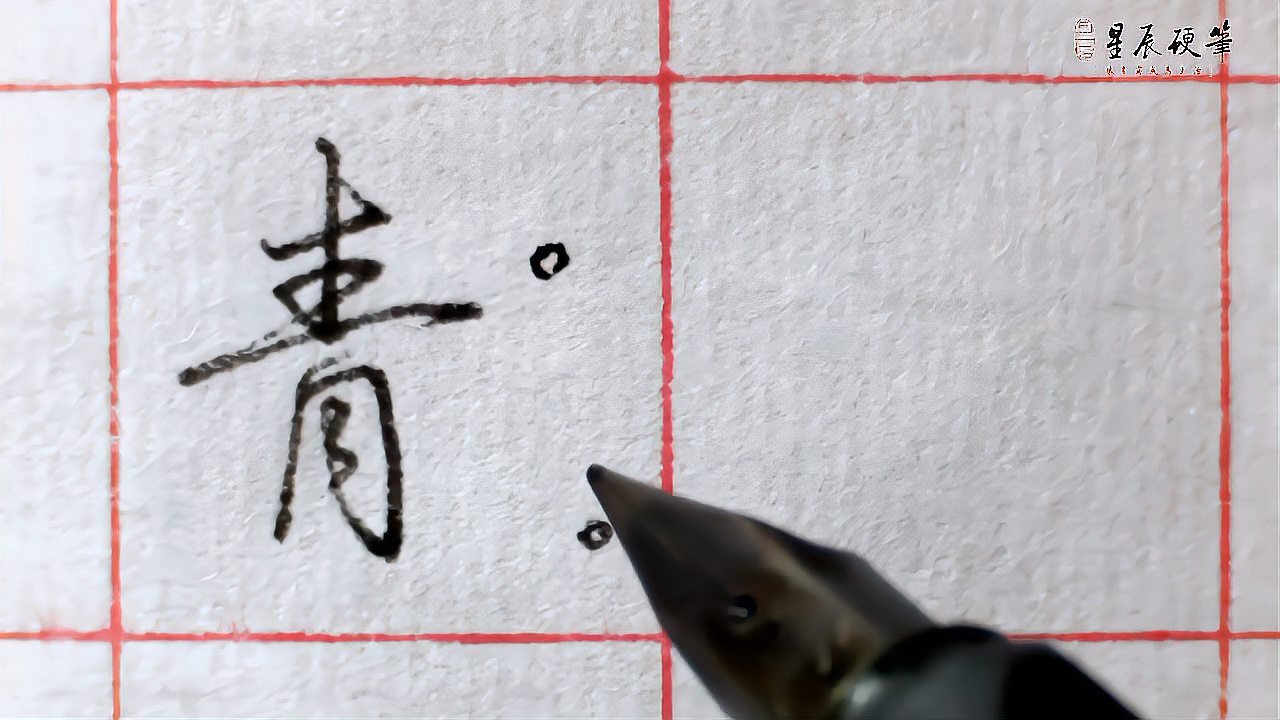 星辰硬筆
青